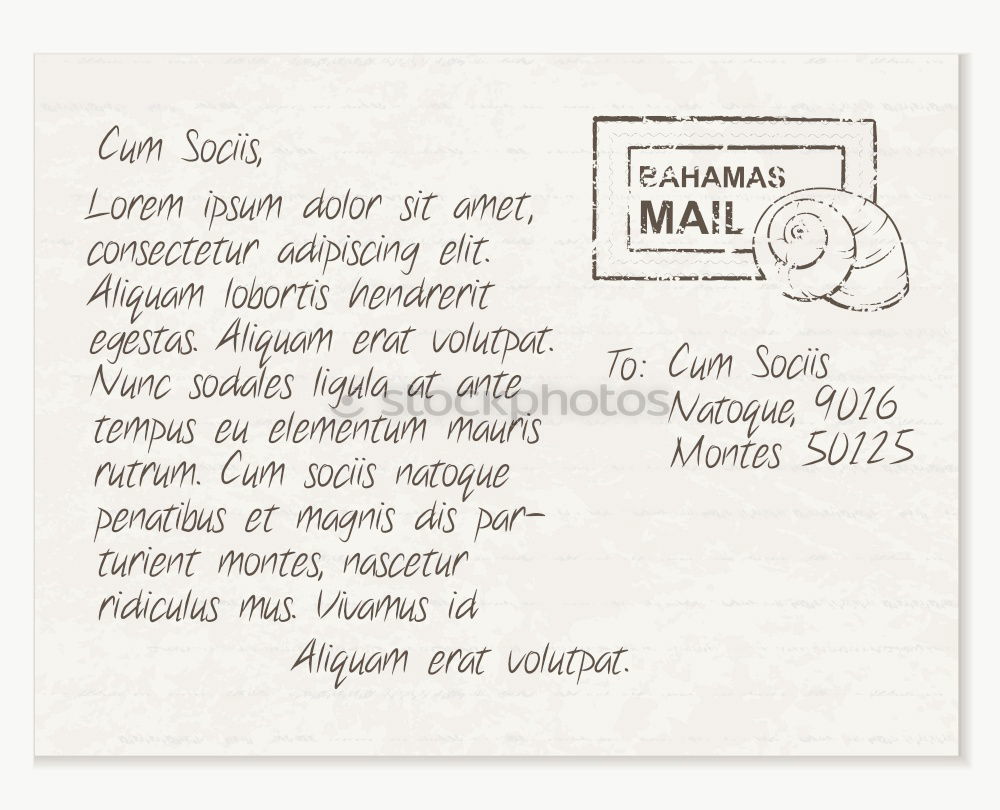 Cum Sociis,
Lorem ipsum dolor sit amet,
consectetur adipiscing elit.
Aliquam lobortis hendrerit
egestas. Aliquam erat volutpat.
Nunc sodales ligula at ante
tempus eu elementum mauris
rutrum. Cum sociis natoque
penatibus et magnis dis par-
turient montes, nascetur
ridiculus mus. Vivamus id
Aliquam erat volutpat.
BAHAMAS
MAIL
To: Cum Sociis
Natoque, 9016
Montes 50125
© stockphotos